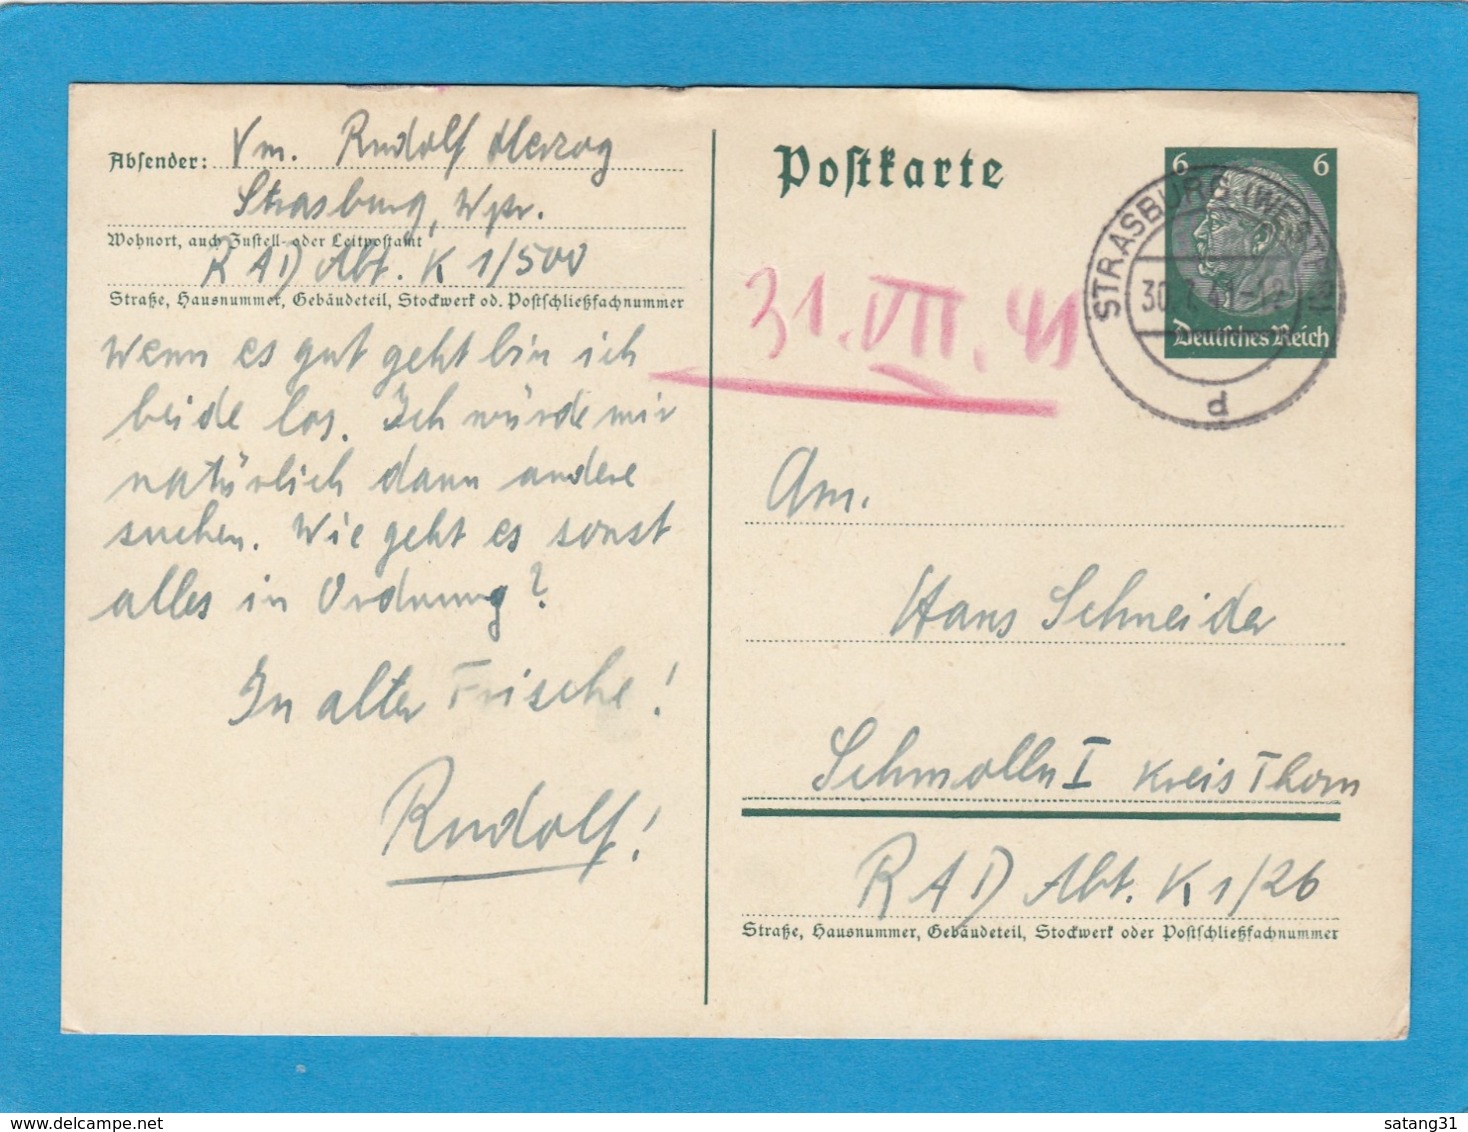 Absender: Vm. Rudolf Herzog
Strasburg, Wpr.
Wohnort, auch Zustell- oder Leitpostamt
RAD Abt. K 1/500
Straße, Hausnummer, Gebäudeteil, Stockwerk od. Postschließfachnummer
Wenn es gut geht bin ich
beide los. Ich würde mir
natürlich dann andere
suchen. Wie geht es sonst
alles in Ordnung?
In alter Frische!
Rudolf!
Postkarte
6 6
Deutsches Reich
STRASBURG (WESTPR)
30. 7. 41-12
d
31. VII. 41
An.
Hans Schneider
Schmolln I Kreis Thorn
RAD Abt. K 1/26
Straße, Hausnummer, Gebäudeteil, Stockwerk oder Postschließfachnummer
satang31